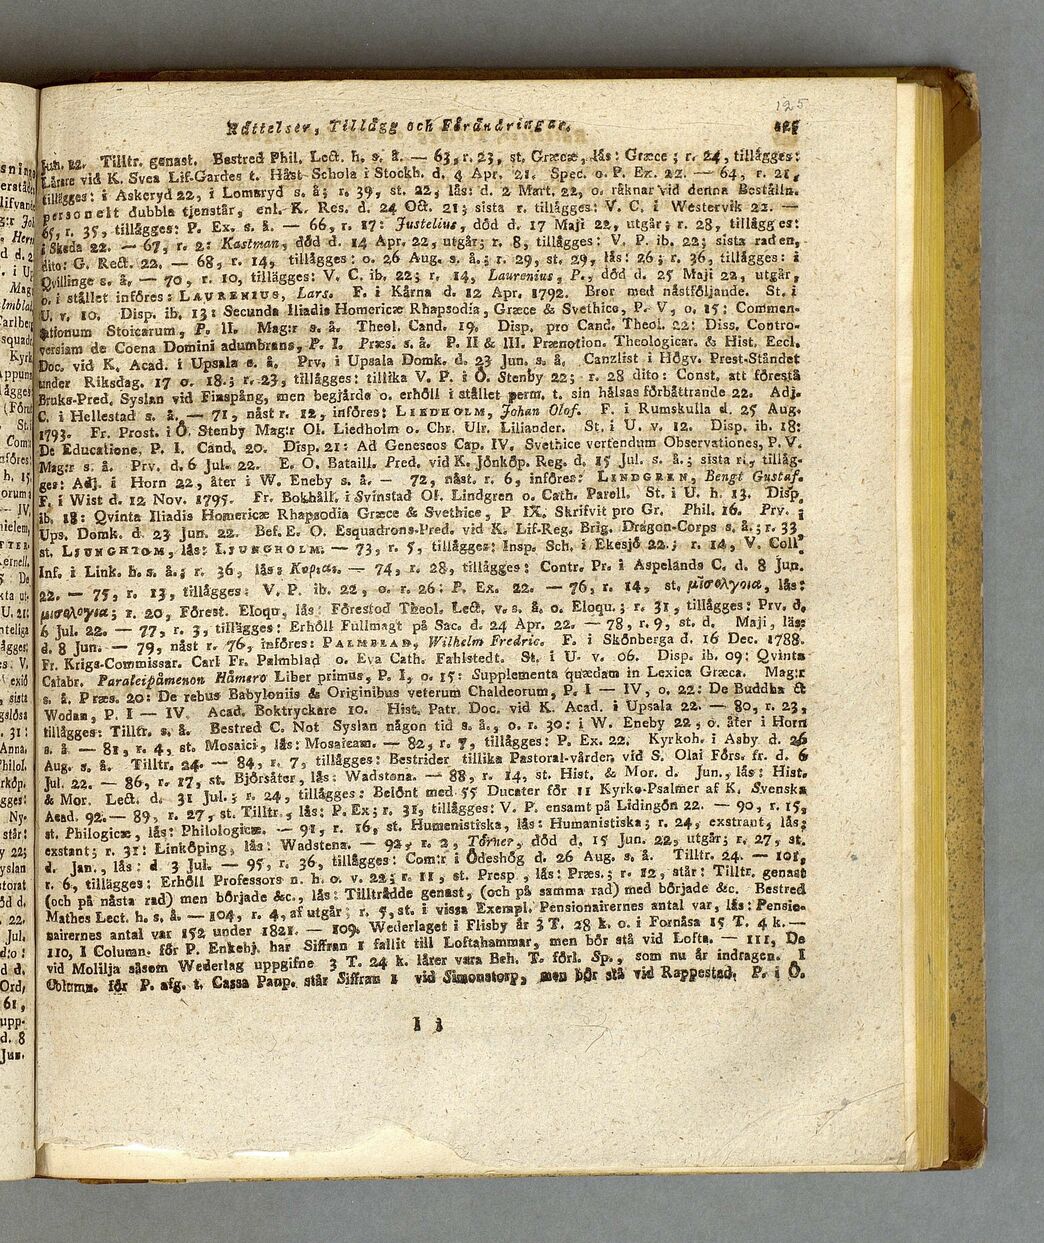 125
Råttelser, Tillågg och Förändringar.
Jun. 22. Tilltr. genast. Bestred Phil. Lect. h. s. å. — 63, r. 23, st. Græcæ, lås: Græce; r. 24, tillågges:
Lårare vid K. Svea Lif-Gardes t. Håst Schola i Stockh. d. 4 Apr. 21. Spec. o. P. Ex. 22. — 64, r. 21,
tillågges: i Askeryd 22, i Lomaryd s. å; r. 39, st. 22, lås: d. 2 Mart. 22, o. råknar vid denna Beställn.
personelt dubbla tjenstår, enl. K. Res. d. 24 Oct. 21; sista r. tillågges: V. C. i Westervik 22. —
65, r. 35, tillågges: P. Ex. s. å. — 66, r. 17: Justelius, död d. 17 Maji 22, utgår; r. 28, tillågges:
i Skeda 22. — 67, r. 2: Kastman, död d. 14 Apr. 22, utgår; r. 8, tillågges: V. P. ib. 22; sista raden,
dito: G. Rect. 22. — 68, r. 14, tillågges: o. 26 Aug. s. å.; r. 29, st. 29, lås: 26; r. 36, tillågges: i
Qvillinge s. å. — 70, r. 10, tillågges: V. C. ib. 22; r. 14, Laurenius, P., död d. 25 Maji 22, utgår,
o. i stållet införes: LAURENIUS, Lars. F. i Kårna d. 12 Apr. 1792. Bror med nåstföljande. St. i
U. v. 10. Disp. ib. 13: Secunda Iliadis Homericæ Rhapsodia, Græce & Svethice, P. V, o. 15: Commen-
tationum Stoicarum, P. II. Mag:r s. å. Theol. Cand. 19. Disp. pro Cand. Theol. 22: Diss. Contro-
versiam de Coena Domini adumbrans, P. I. Præs. s. å. P. II & III. Prænotion. Theologicar. & Hist. Eccl.
Doc. vid K. Acad. i Upsala s. å. Prv. i Upsala Domk. d. 23 Jun. s. å. Canzlist i Högv. Prest-Ståndet
under Riksdag. 17 o. 18.; r. 23, tillågges: tillika V. P. i Ö. Stenby 22; r. 28 dito: Const. att förestå
Bruks-Pred. Syslan vid Finspång, men begjårde o. erhöll i stållet perm. t. sin hålsas förbåttrande 22. Adj.
C. i Hellestad s. å. — 71, nåst r. 12, införes: LIEDHOLM, Johan Olof. F. i Rumskulla d. 25 Aug.
1793. Fr. Prost. i Ö. Stenby Mag:r Ol. Liedholm o. Chr. Ulr. Liliander. St. i U. v. 12. Disp. ib. 18:
De Educatione, P. I. Cand. 20. Disp. 21: Ad Geneseos Cap. IV. Svethice vertendum Observationes, P. V.
Mag:r s. å. Prv. d. 6 Jul. 22. E. O. Bataill. Pred. vid K. Jönköp. Reg. d. 15 Jul. s. å.; sista r., tillåg-
ges: Adj. i Horn 22, åter i W. Eneby s. å. — 72, nåst. r. 6, införes: LINDGREN, Bengt Gustaf.
F. i Wist d. 12 Nov. 1795. Fr. Bokhåll. i Svinstad Ol. Lindgren o. Cath. Parell. St. i U. h. 13. Disp.
ib. 18: Qvinta Iliadis Homericæ Rhapsodia Græce & Svethice, P. IX. Skrifvit pro Gr. Phil. 16. Prv. i
Ups. Domk. d. 23 Jun. 22. Bef. E. O. Esquadrons-Pred. vid K. Lif-Reg. Brig. Dragon-Corps s. å.; r. 33
st. LJUNGHTOM, lås: LJUNGHOLM. — 73, r. 5, tillågges: Insp. Sch. i Eksjö 22.; r. 14, V. Coll.
Inf. i Link. h. s. å.; r. 36, lås: Κυριας. — 74, r. 28, tillågges: Contr. Pr. i Aspelands C. d. 8 Jun.
22. — 75, r. 13, tillågges: V. P. ib. 22, o. r. 26: P. Ex. 22. — 76, r. 14, st. μισολγοια, lås:
μισολογια; r. 20, Förest. Eloqu., lås: Förestod Theol. Lect. v. s. å. o. Eloqu.; r. 31, tillågges: Prv. d.
6 Jul. 22. — 77, r. 3, tillågges: Erhöll Fullmagt på Sac. d. 24 Apr. 22. — 78, r. 9, st. d. Maji, lås:
d. 8 Jun. — 79, nåst r. 76, införes: PALMBLAD, Wilhelm Fredric. F. i Skönberga d. 16 Dec. 1788.
Fr. Krigs-Commissar. Carl Fr. Palmblad o. Eva Cath. Fahlstedt. St. i U. v. 06. Disp. ib. 09: Qvinta
Calabr. Paraleipåmenon Håmero Liber primus, P. I, o. 15: Supplementa quædam in Lexica Græca. Mag:r
s. å. Præs. 20: De rebus Babyloniis & Originibus veterum Chaldeorum, P. I — IV, o. 22: De Buddha &
Wodan, P. I — IV. Acad. Boktryckare 10. Hist. Patr. Doc. vid K. Acad. i Upsala 22. — 80, r. 23,
tillågges: Tilltr. s. å. Bestred C. Not Syslan någon tid s. å., o. r. 30: i W. Eneby 22, o. åter i Horn
s. å. — 81, r. 4, st. Mosaici, lås: Mosaicam. — 82, r. 7, tillågges: P. Ex. 22. Kyrkoh. i Asby d. 26
Aug. s. å. Tilltr. 24. — 84, r. 7, tillågges: Bestrider tillika Pastoral-vårder vid S. Olai Förs. fr. d. 6
Jul. 22. — 86, r. 17, st. Björsåter, lås: Wadstena. — 88, r. 14, st. Hist. & Mor. d. Jun., lås: Hist.
& Mor. Lect. d. 31 Jul.; r. 24, tillågges: Belönt med 55 Ducater för 11 Kyrko-Psalmer af K. Svenska
Acad. 92. — 89, r. 27, st. Tilltr., lås: P. Ex; r. 31, tillågges: V. P. ensamt på Lidingön 22. — 90, r. 15,
st. Philogicæ, lås: Philologicæ. — 91, r. 16, st. Humenistiska, lås: Humanistiska; r. 24, exstrant, lås;
exstant; r. 31: Linköping, lås: Wadstena. — 92, r. 2, Törner, död d. 15 Jun. 22, utgår; r. 27, st.
d. Jan., lås: d 3 Jul. — 95, r. 36, tillågges: Com:r i Ödeshög d. 26 Aug. s. å. Tilltr. 24. — 101,
r. 6, tillågges: Erhöll Professors n. h. o. v. 22; r. 11, st. Presp, lås: Præs.; r. 12, står: Tilltr. genast
(och på nåsta rad) men började &c., lås: Tilltrådde genast, (och på samma rad) med började &c. Bestred
Mathes Lect. h. s. å. — 104, r. 4, af utgår; r. 5, st. i vissa Exempl. Pensionairernes antal var, lås: Pensio-
nairernes antal var 152 under 1821. — 109. Wederlaget i Flisby år 3 T. 28 k. o. i Fornåsa 15 T. 4 k. —
110, I Column. för P. Enkehj. har Siffran 1 fallit till Loftahammar, men bör stå vid Lofta. — 111, De
vid Molilja såsom Wederlag uppgifne 3 T. 24 k. lårer vara Beh. T. förl. Sp., som nu år indragen. I
Column. för P. afg. t. Cassa Paup. står Siffran 1 vid Simonstorp, men bör stå vid Rappestad. P. i Ö.